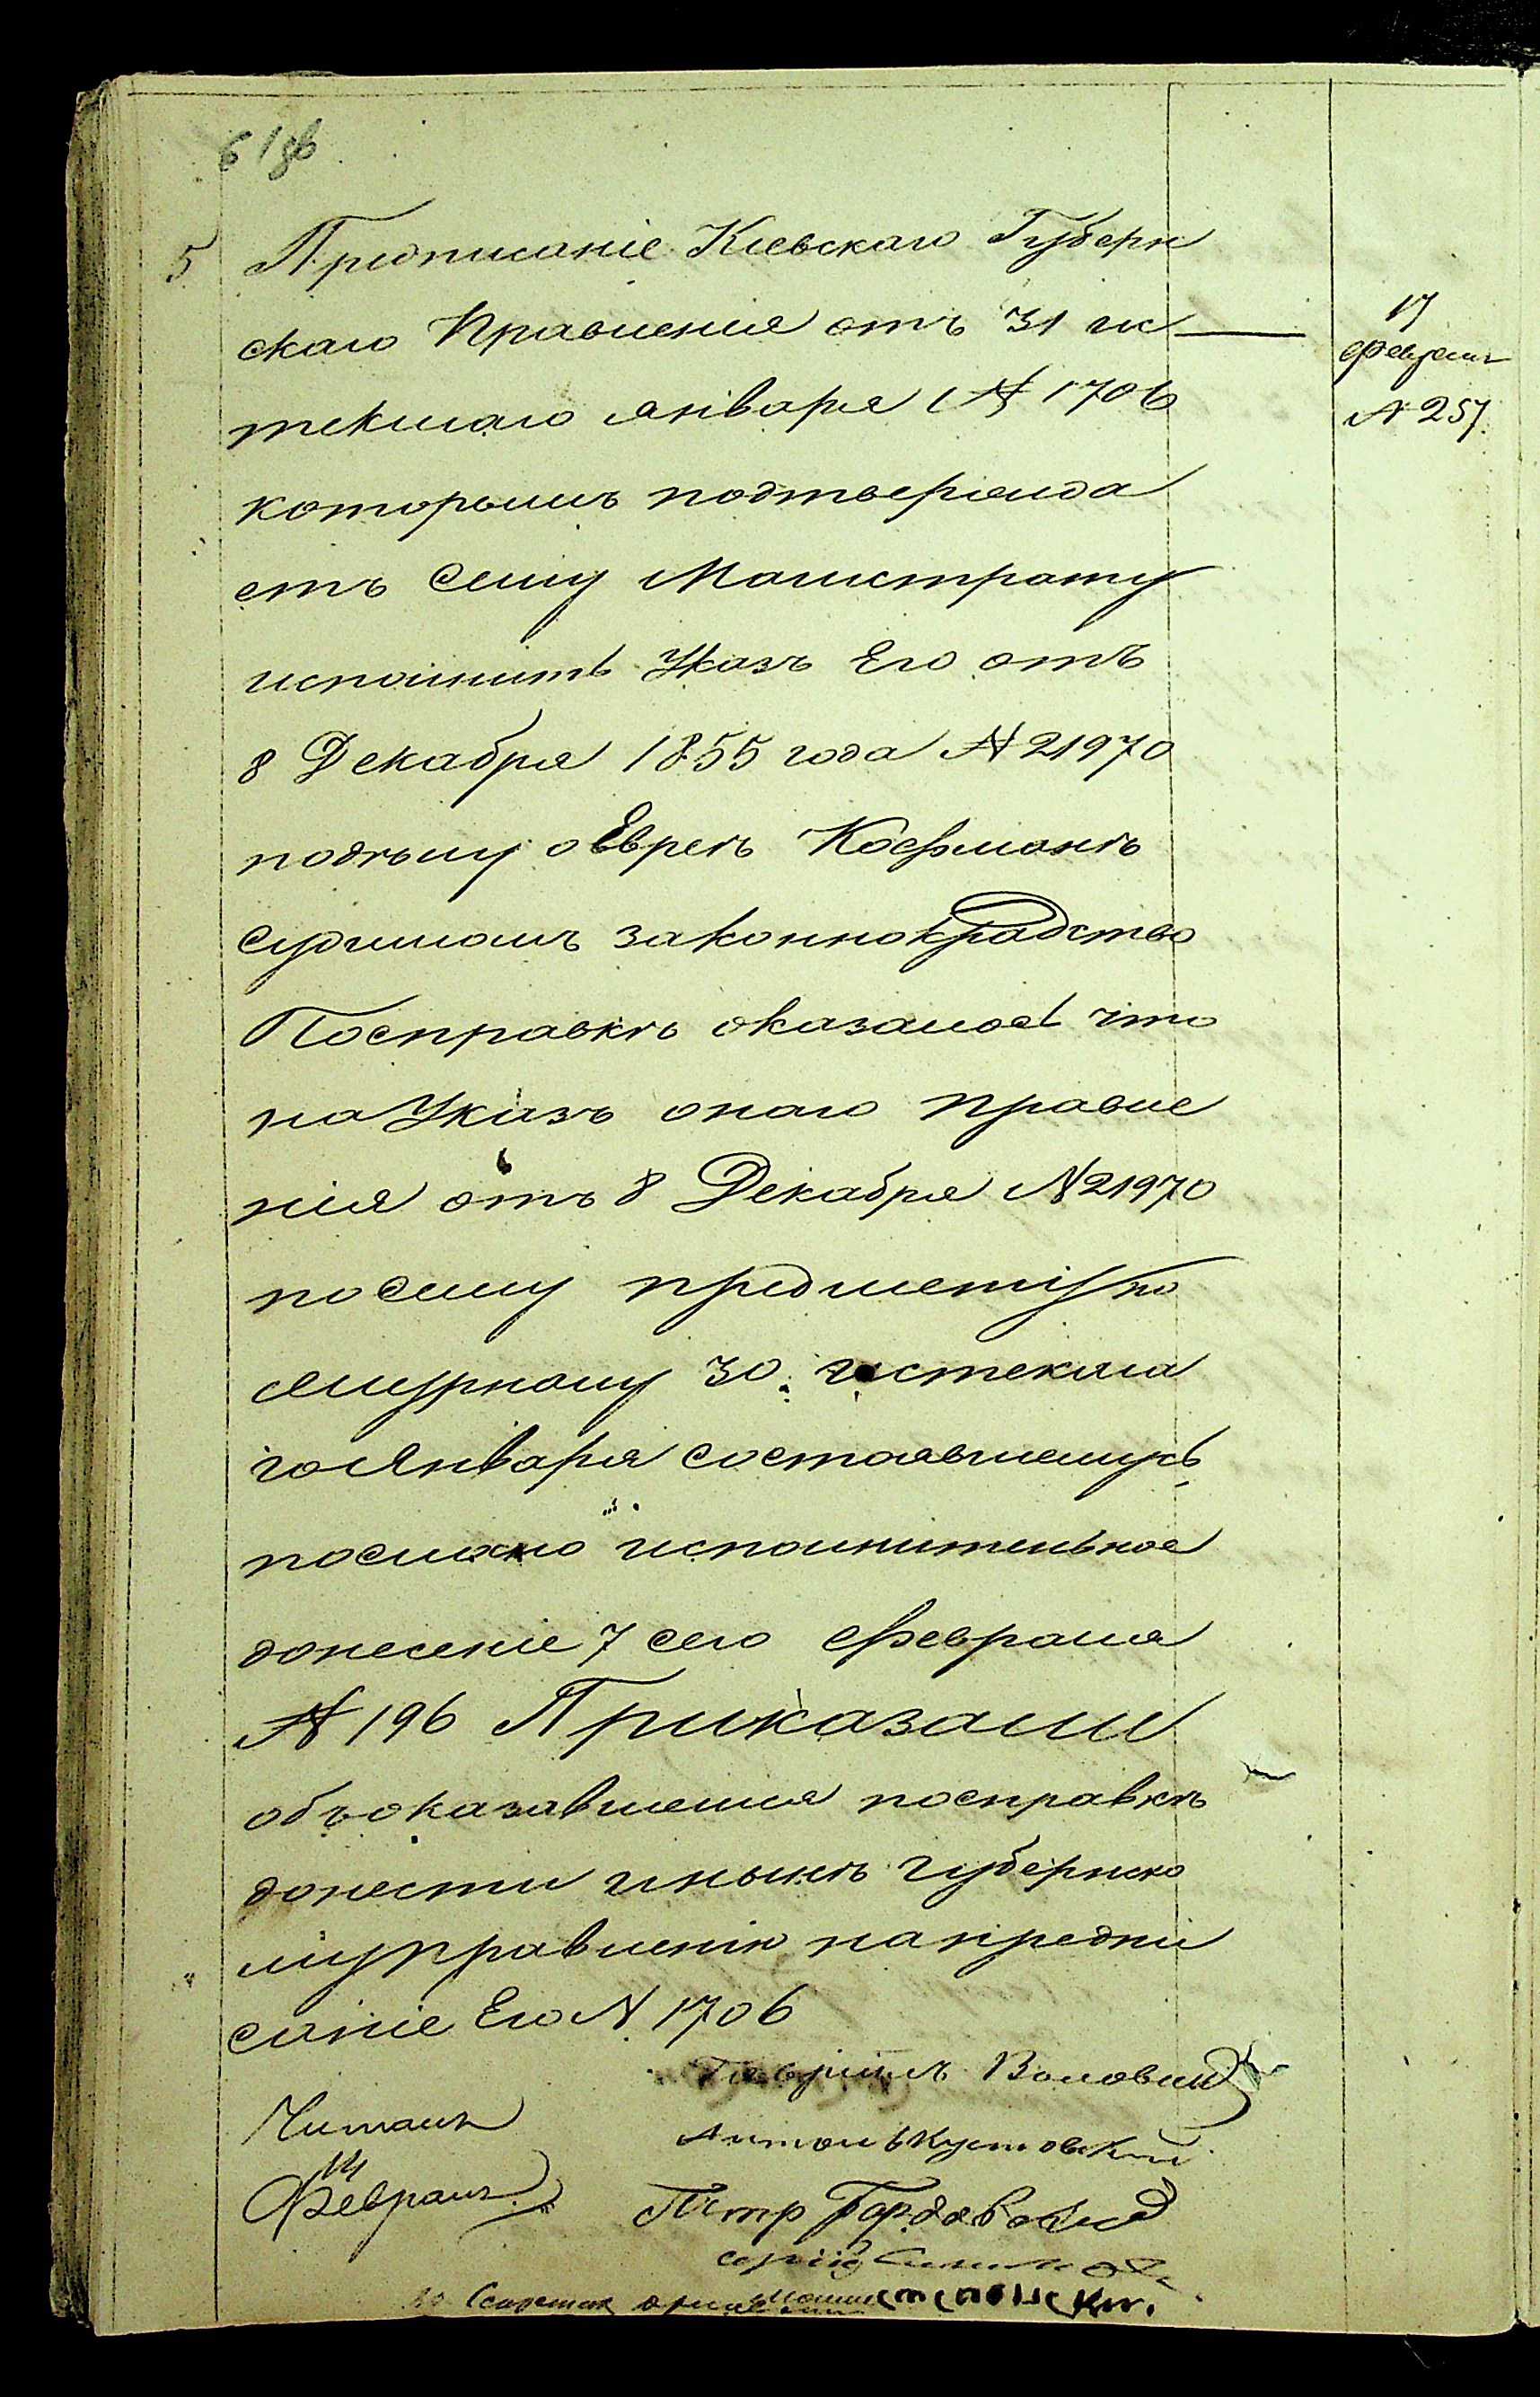 5 Предписаніе Кіевскаго Губерн
скаго Правленія отъ 31 ис
текшаго января № 1706
17 февраля № 257
которымъ подтвержда
етъ сему Магистрату
исполнить Указъ Его отъ
8 Декабря 1855 года № 21970
подѣлу о Евреѣ Кофманѣ
судимомъ за конокрадство
Посправкѣ оказалось что
на Указъ онаго Правле
нія отъ 8 Декабря № 21970
посему предмету по
журналу 30 истекша
го Января состоявшемусь
послано исполнительное
донесеніе 7 сего Февраля
№ 196 Приказали
объоказавшемся посправкѣ
донести и нынѣ губернско
му правленію на предпи
саніе Его № 1706
Гавріилъ
Читалъ
Антонъ Кустовскій
14
Февраля
Петр
Сергій